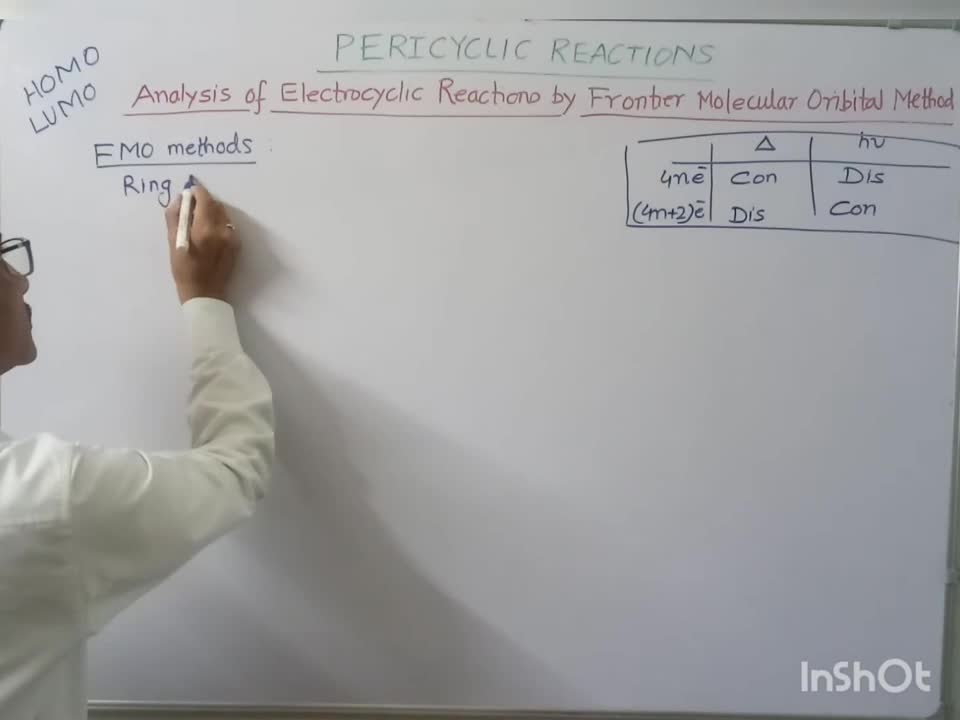 PERICYCLIC REACTIONS
HOMO
LUMO
Analysis of Electrocyclic Reactions by Frontier Molecular Oribital Method
FMO methods :
Ring
Δ hν
4nē Con Dis
(4n+2)ē Dis Con
InShOt